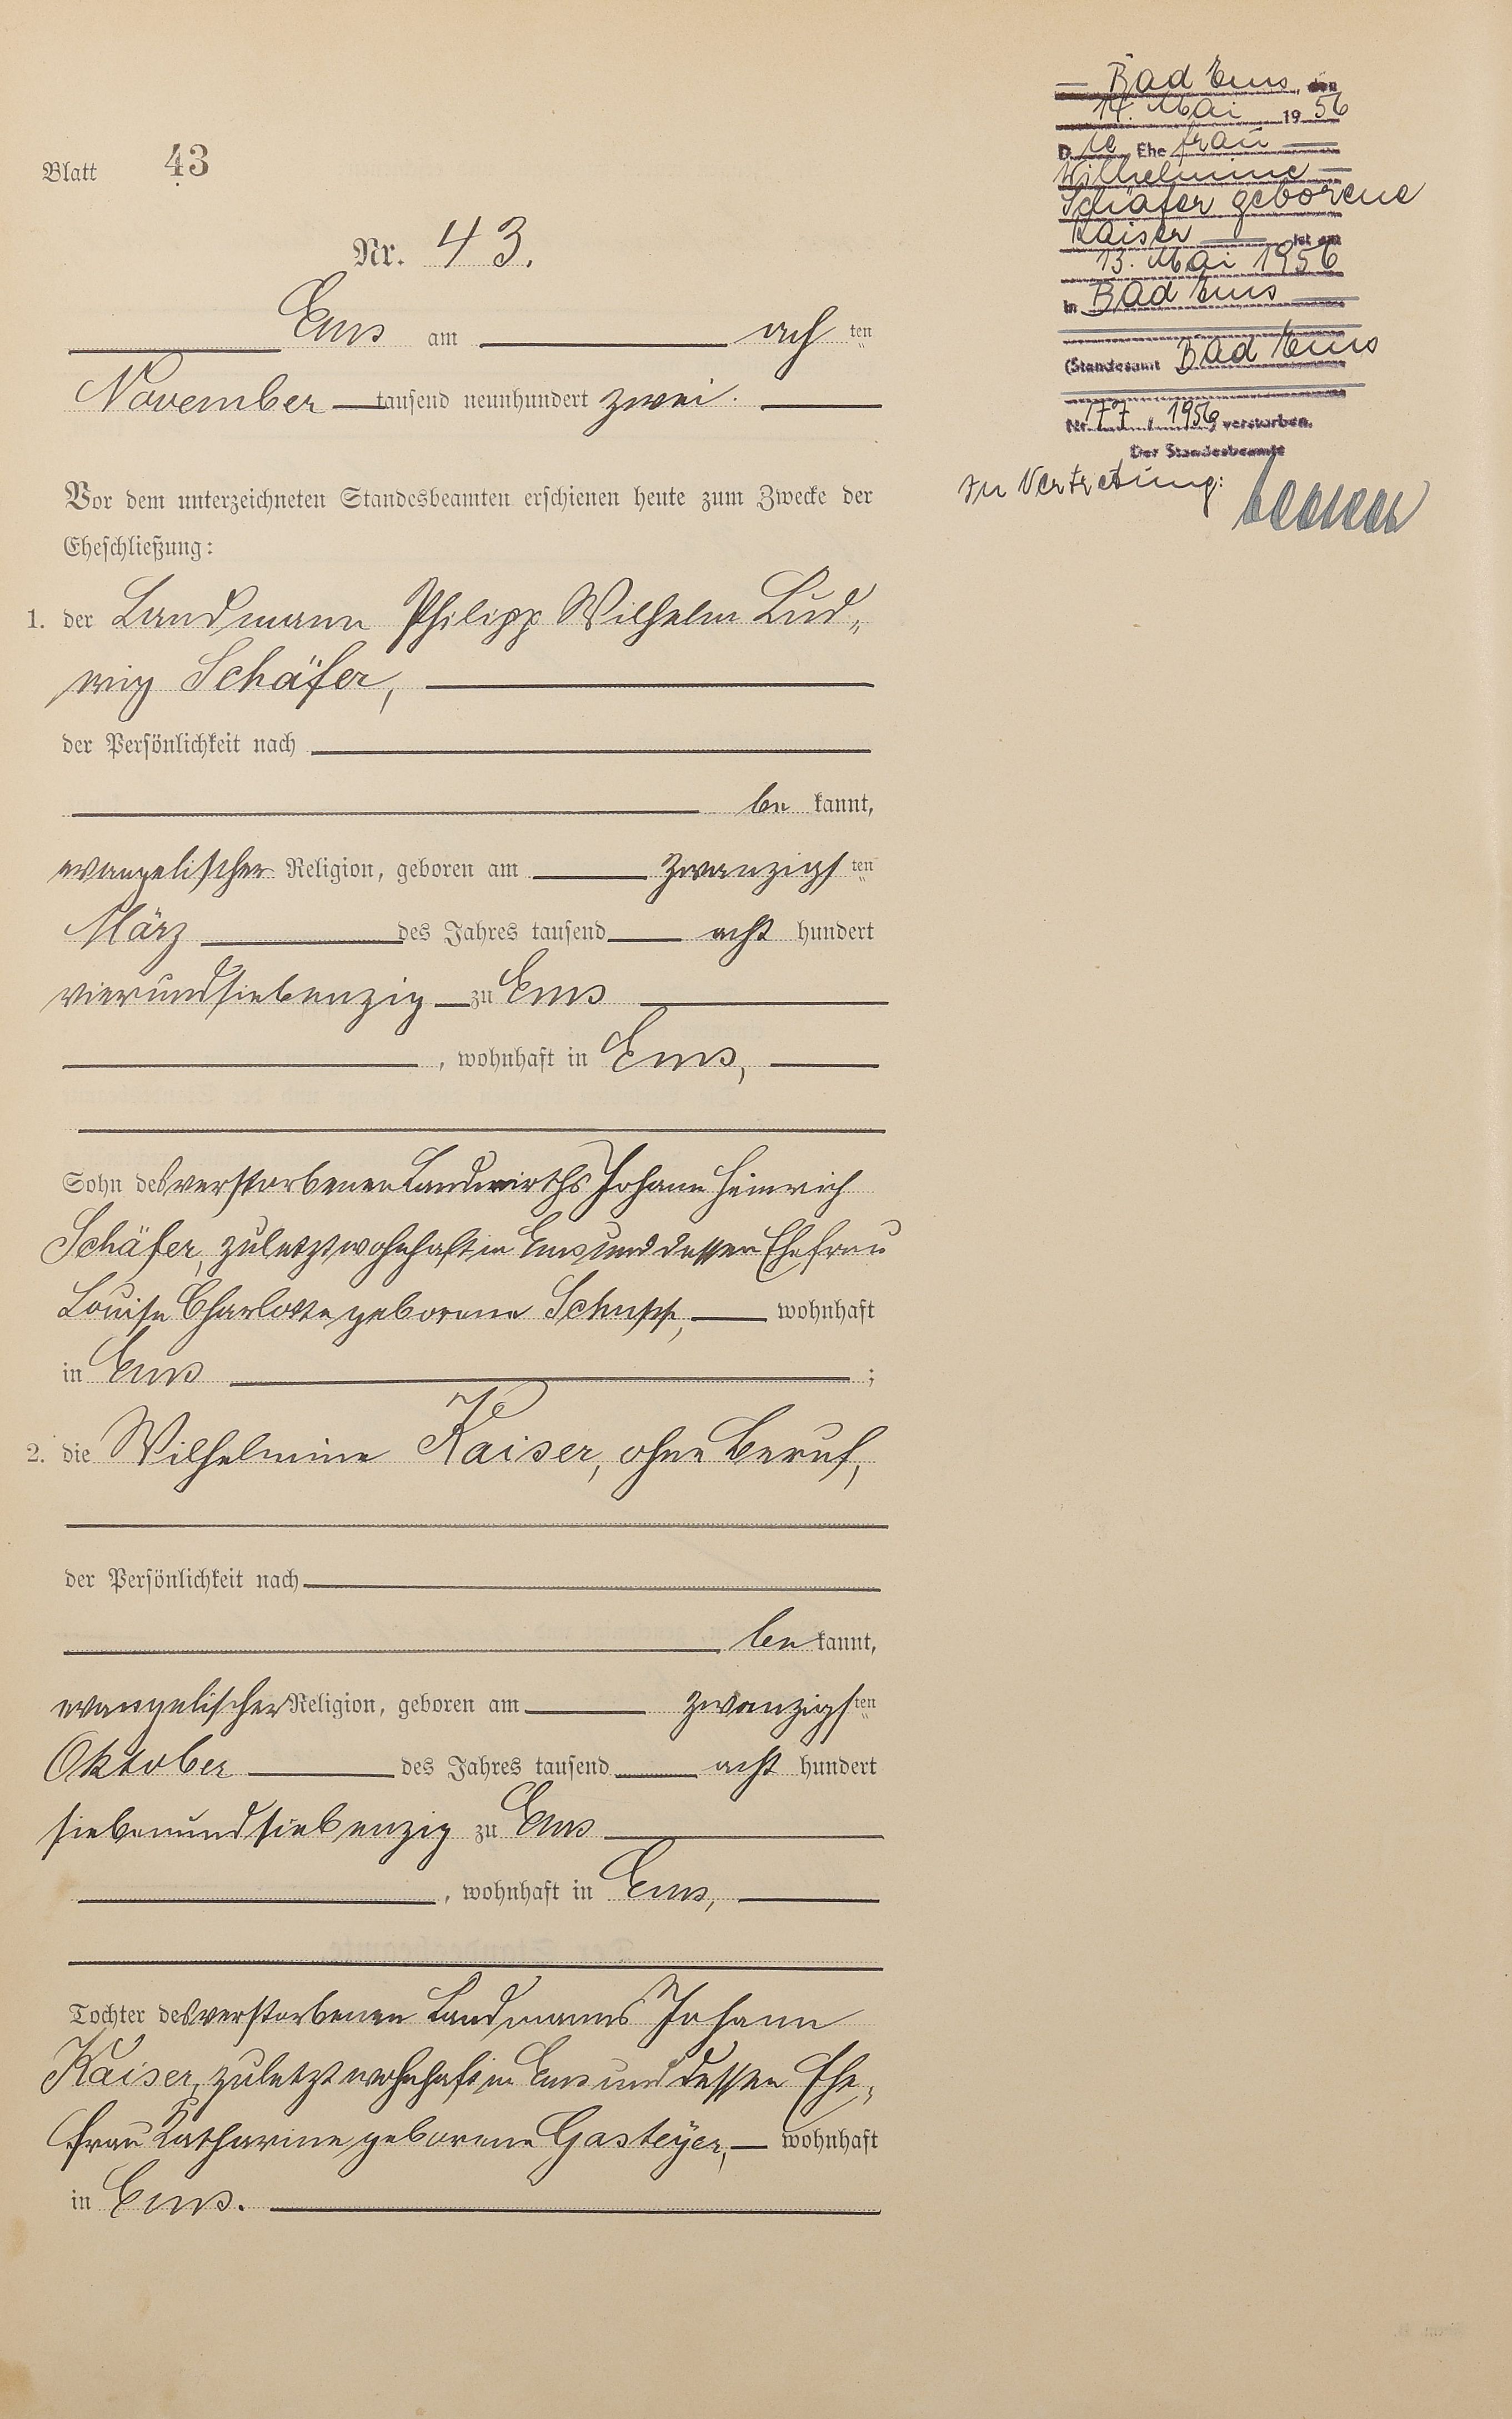 Blatt 43
Nr. 43.
Ems am ach ten
November tausend neunhundert zwei.
Vor dem unterzeichneten Standesbeamten erschienen heute zum Zwecke der
Eheschließung:
1. der Landmann Philipp Wilhelm Lud„
wig Schäfer,
der Persönlichkeit nach
be kannt,
evangelischer Religion, geboren am zwanzigs ten
März des Jahres tausend acht hundert
vierundsiebenzig zu Ems
, wohnhaft in Ems,
Sohn des verstorbenen Landwirths Johann Heinrich
Schäfer, zuletzt wohnhaft in Ems und dessen Ehefrau
Louise Charlotte geborene Schupp, wohnhaft
in Ems ;
2. die Wilhelmine Kaiser, ohne Beruf,
der Persönlichkeit nach
be kannt,
evangelischer Religion, geboren am zwanzigs ten
Oktober des Jahres tausend acht hundert
siebenundsiebenzig zu Ems
, wohnhaft in Ems,
Tochter des verstorbenen Landmanns Johann
Kaiser, zuletzt wohnhaft in Ems und dessen Ehe„
frau Katharine geborene Gasteyer, wohnhaft
in Ems.
Bad Ems, den
14. Mai 19 56
D ie Ehe frau
Wilhelmine
Schäfer geborene
Kaiser ist am
13. Mai 1956
in Bad Ems
(Standesamt Bad Ems
Nr. 177 / 1956) verstorben.
Der Standesbeamte
In Vertretung: